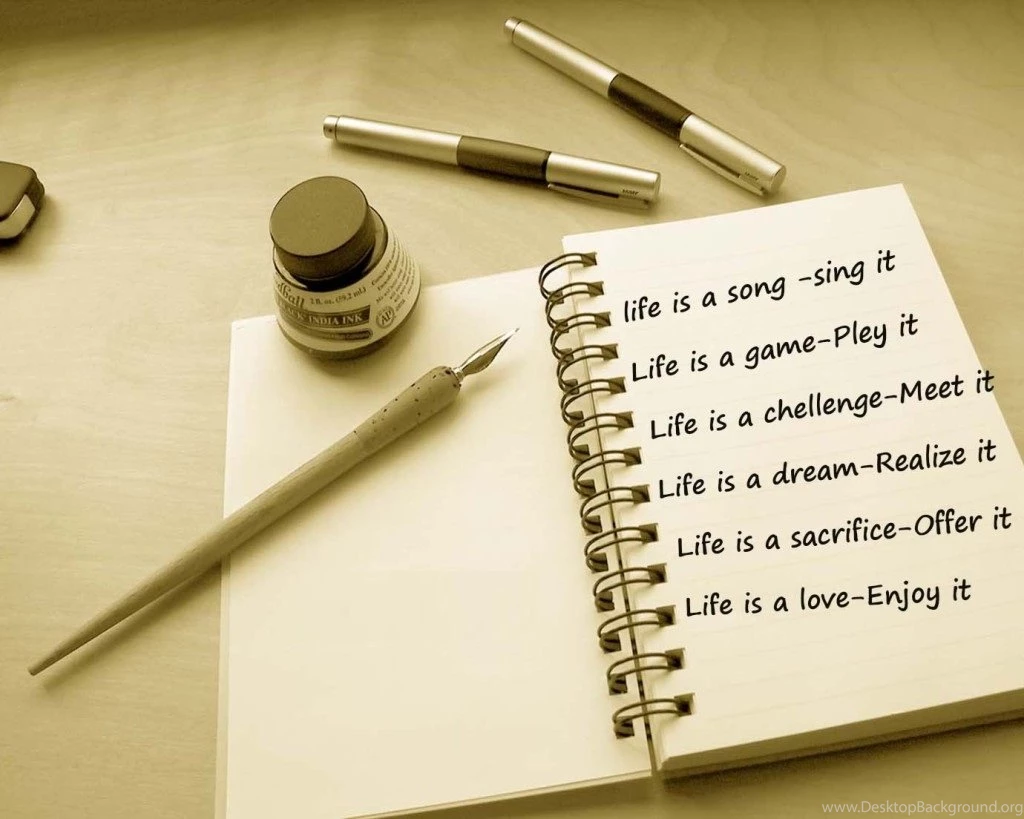 life is a song -sing it
Life is a game-Pley it
Life is a chellenge-Meet it
Life is a dream-Realize it
Life is a sacrifice-Offer it
Life is a love-Enjoy it
2 fl. oz. (59,2 mL)
INDIA INK
www.DesktopBackground.org